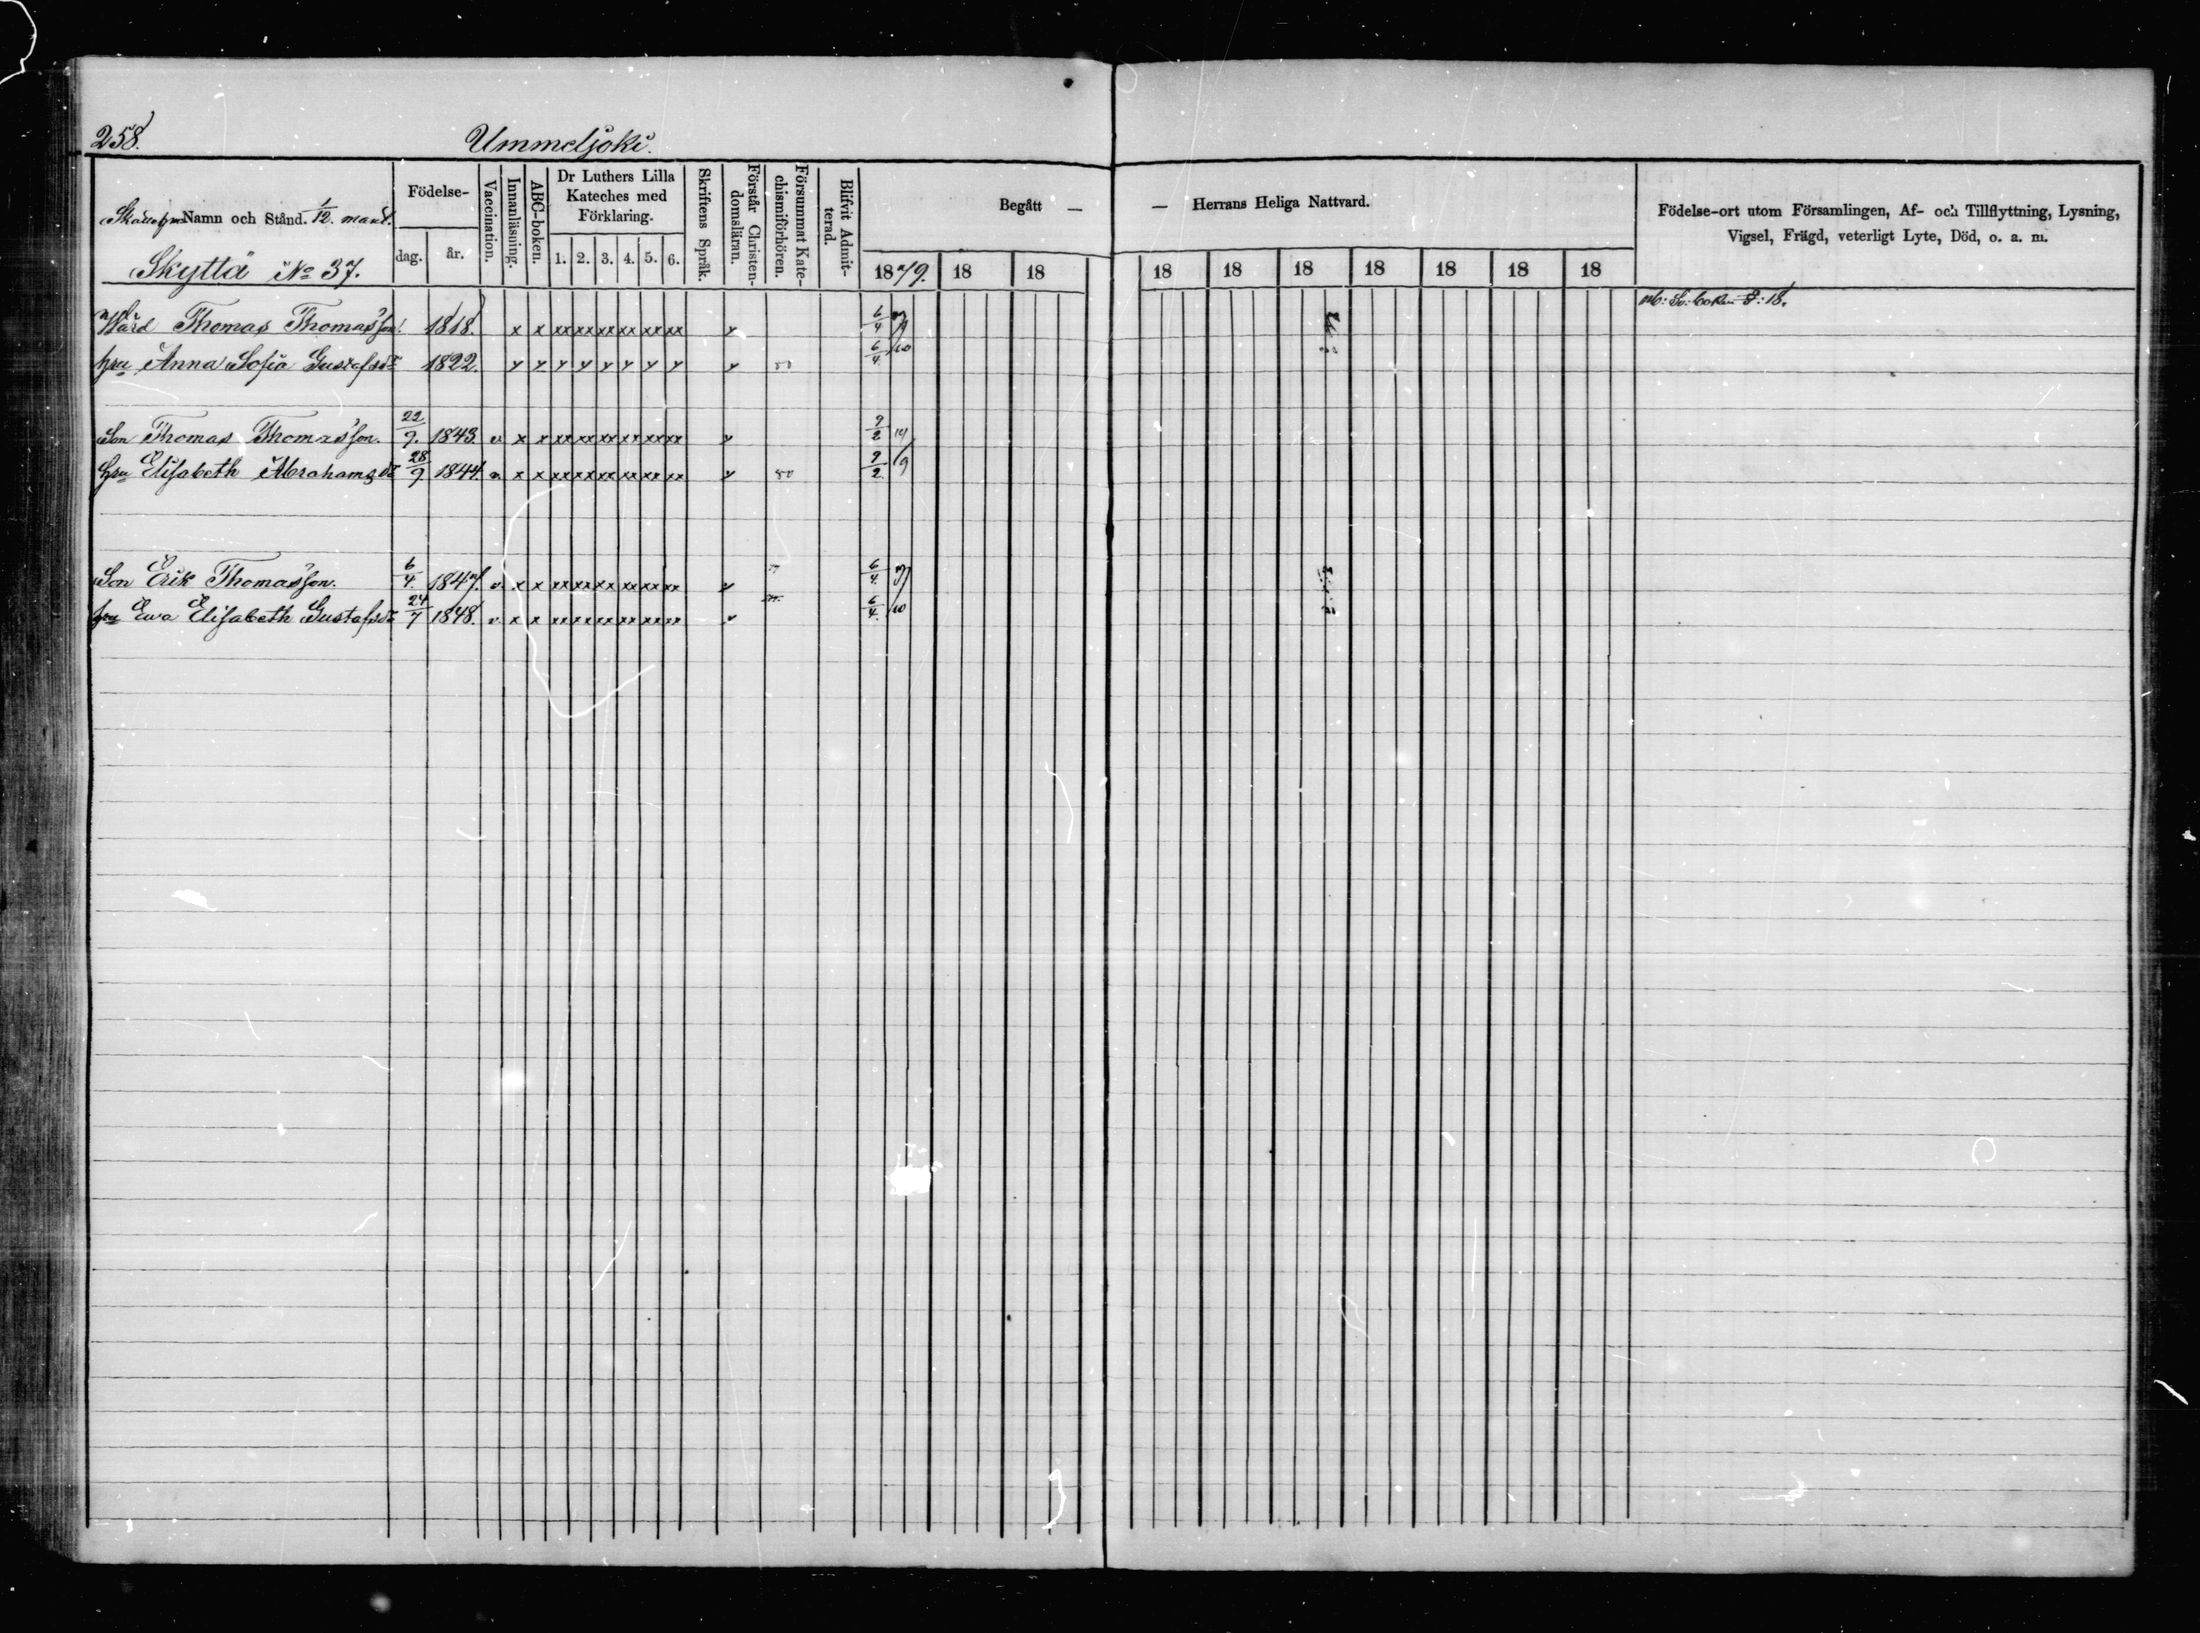 258.
Ummeljoki.
Namn och Stånd. 1/12. mant.
Skyttä No 37.
Födelse-
dag. år.
Vaccination.
Innanläsning.
ABC-boken.
Dr Luthers Lilla
Kateches med
Förklaring.
1. 2. 3. 4. 5. 6.
Skriftens Språk.
Förstår Christen-
domsläran.
Försummat Kate-
chismiförhören.
Blifvit Admit-
terad.
Begått —
— Herrans Heliga Nattvard.
1879. 18 18
18 18 18 18 18 18 18
Födelse-ort utom Församlingen, Af- och Tillflyttning, Lysning,
Vigsel, Frägd, veterligt Lyte, Död, o. a. m.
Thomas Thomasson 1818. x x xx xx xx xx xx xx 6/4
hru Anna Sofia Gustafsdr 1822. y y y y y y y y y 50 6/4 10
Son Thomas Thomasson. 22/9. 1843. v x x xx xx xx xx xx xx y 9/2
hru Elisabeth Abrahamsdr 28/9. 1844. v. x x xx xx xx xx xx xx y 50 9/2 9
Son Erik Thomasson. 6/4. 1847. v. x x xx xx xx xx xx xx y 6/4
hru Ewa Elisabeth Gustafsdr 24/7 1848. v. x x xx xx xx xx xx xx 6/4. 10